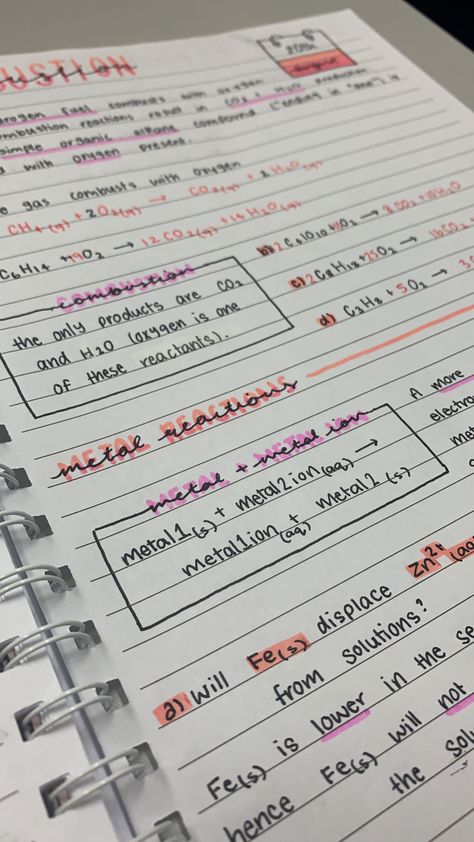 USTION
20th
august
rogen fuel combusts with oxygen
ombustion reactions result in CO₂ + H₂O production
simple organic alkane compound (ending in "ane") is
d with oxygen present.
e gas combusts with oxygen
CH₄(g) + 2O₂(g) → CO₂(g) + 2H₂O(g)
C₆H₁₄ + 19O₂ → 12CO₂(g) + 14H₂O(g)
b)
c)
d) C₃H₈ + 5O₂ →
combustion
the only products are CO₂
and H₂O (oxygen is one
of these reactants).
metal reactions
metal + metal ion
metal1(s) + metal2ion(aq) →
metal1ion(aq) + metal2(s)
A more
electro
met
a) Will Fe(s) displace Zn²⁺(aq)
from solutions?
Fe(s) is lower in the se
hence Fe(s) will not
the solu